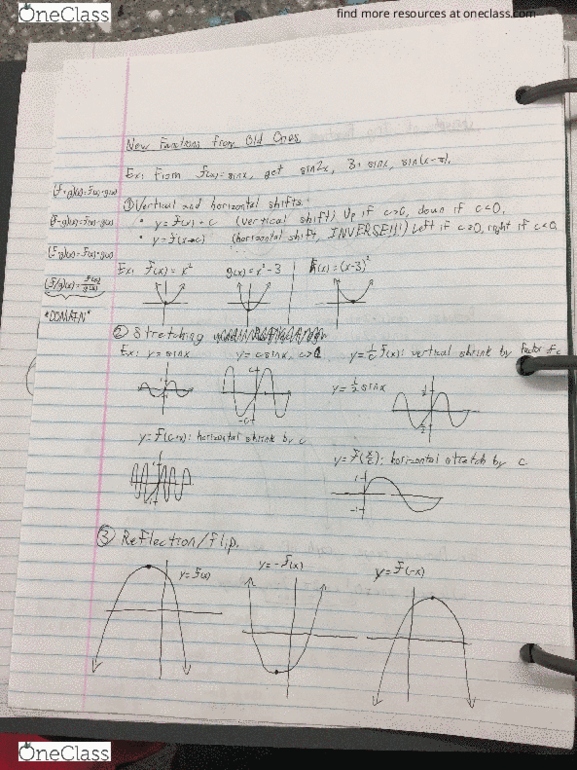 OneClass
find more resources at oneclass.com
New Functions from Old Ones
Ex: From f(x)=sinx, get sin2x, 3·sinx, sin(x-π).
① Vertical and horizontal shifts:
• y=f(x)+c (vertical shift) Up if c>0, down if c<0,
• y=f(x+c) (horizontal shift, INVERSE!!!) Left if c>0, right if c<0
(f/g)(x)=f(x)/g(x)
*DOMAIN*
Ex: f(x)=x² g(x)=x²-3 h(x)=(x-3)²
② Stretching
Ex: y=sinx y=csinx, c>1 y=1/c f(x): vertical shrink by factor of c
y=1/2 sinx
y=f(cx): horizontal shrink by c
y=f(x/c): horizontal stretch by c
③ Reflection/flip.
y=f(x) y=-f(x) y=f(-x)
OneClass